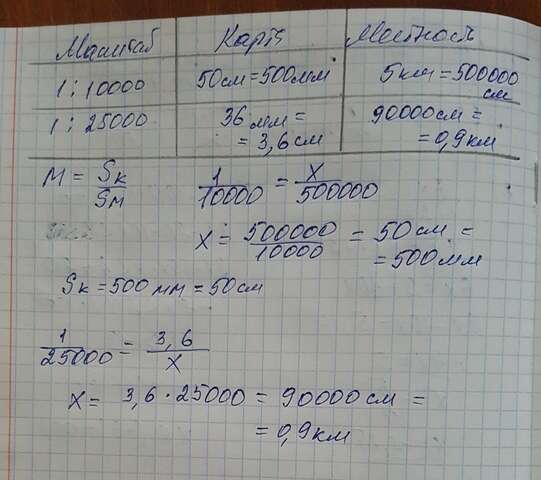 Масштаб Карта Местность
1 : 10000 50 см = 500 мм 5 км = 500000 см
1 : 25000 36 мм = 90000 см =
= 3,6 см = 0,9 км
M = Sк/Sм 1/10000 = x/500000
x = 500000/10000 = 50 см =
= 500 мм
Sк = 500 мм = 50 см
1/25000 = 3,6/x
x = 3,6 · 25000 = 90000 см =
= 0,9 км